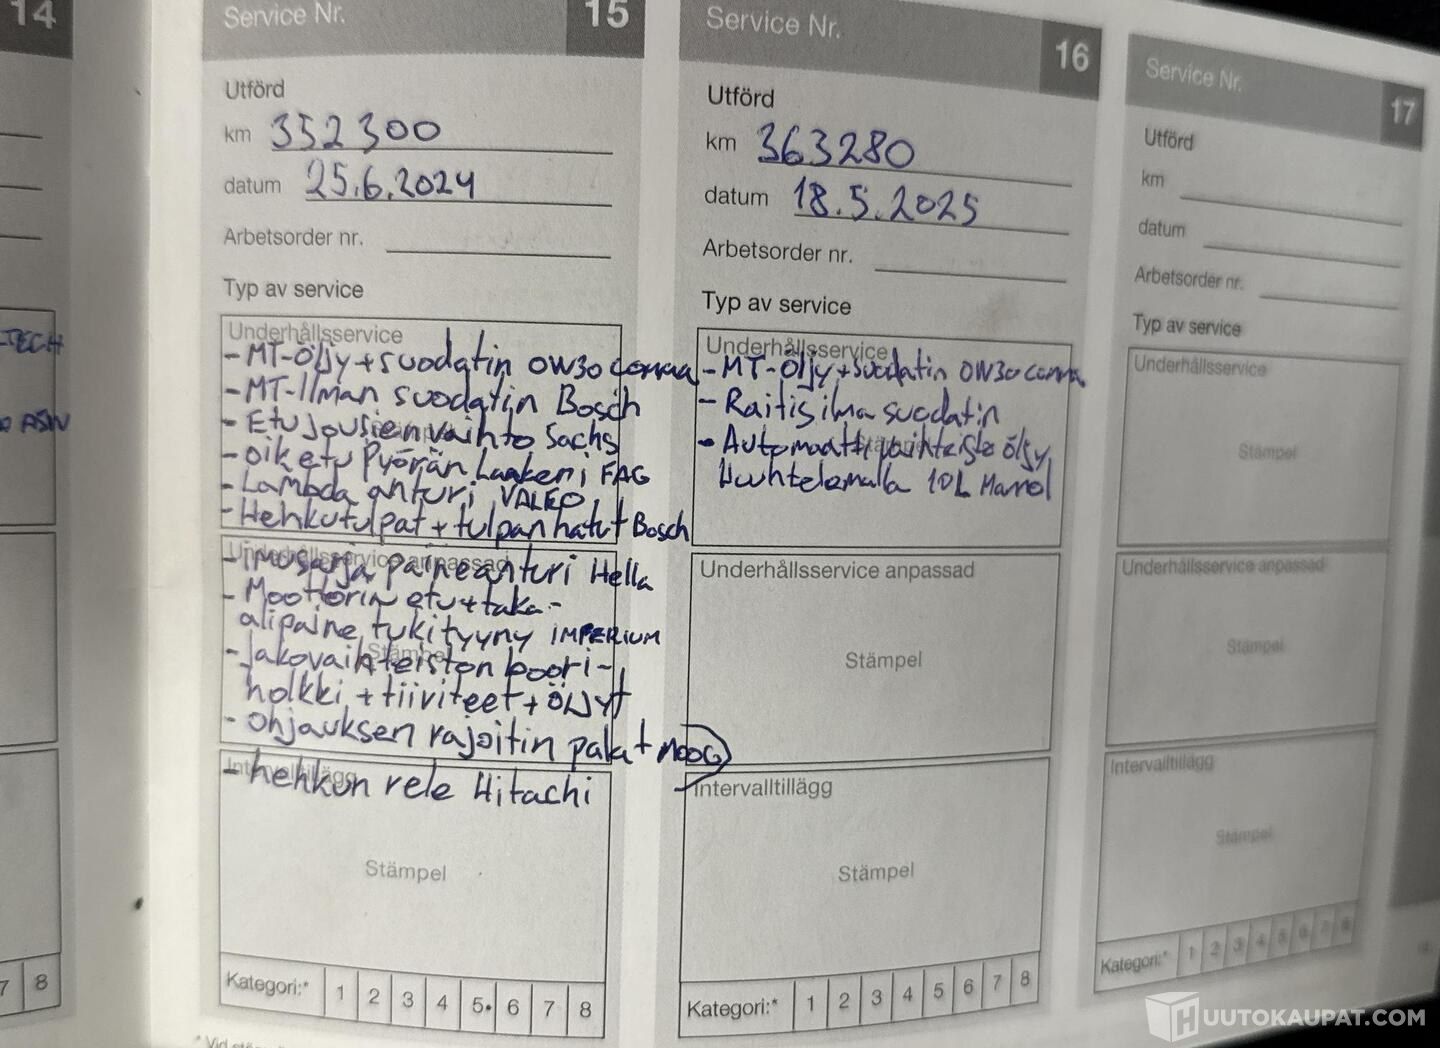 14
8
7
-TECH
ASIN
Service Nr. 15
Utförd
km 352300
datum 25.6.2024
Arbetsorder nr.
Typ av service
Underhållsservice
- MT-Öljy + suodatin 0W30 comma
- MT-Ilman suodatin Bosch
- Etujousien vaihto Sachs
- oik etu Pyörän Laakeri FAG
- Lambda anturi VALEO
- Hehkutulpat + tulpanhatut Bosch
Underhållsservice anpassad
- imusarja paineanturi Hella
- Moottorin etu+taka-
alipaine tukityyny IMPERIUM
Stämpel
- Jakovaihteiston boori-
holkki + tiiviteet + öljyt
- ohjauksen rajoitin palat MOOG
Intervalltillägg
- hehkun rele Hitachi
Stämpel
Kategori:* 1 2 3 4 5 6 7 8
* Vid
Service Nr. 16
Utförd
km 363280
datum 18.5.2025
Arbetsorder nr.
Typ av service
Underhållsservice
- MT-Öljy + suodatin 0W30 comma
- Raitisilma suodatin
- Automaatti vaihteisto öljy
Stämpel
Huuhtelemalla 10L Mannol
Underhållsservice anpassad
Stämpel
Intervalltillägg
Stämpel
Kategori:* 1 2 3 4 5 6 7 8
Service Nr. 17
Utförd
km
datum
Arbetsorder nr.
Typ av service
Underhållsservice
Stämpel
Underhållsservice anpassad
Stämpel
Intervalltillägg
Stämpel
Kategori:* 1 2 3 4 5 6 7 8
HUUTOKAUPAT.COM